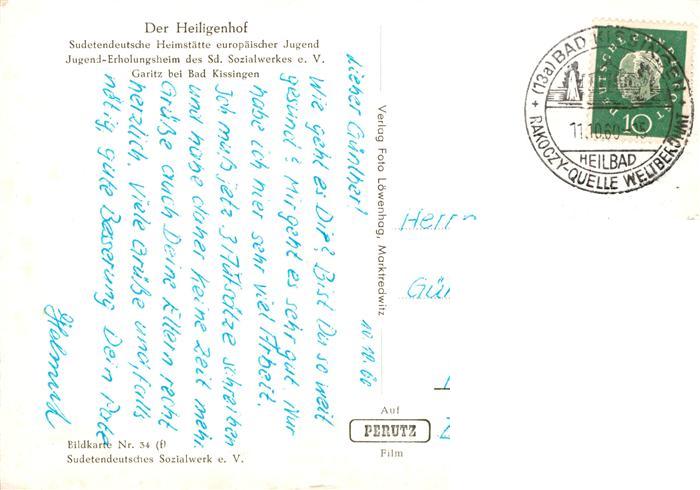 Der Heiligenhof
Sudetendeutsche Heimstätte europäischer Jugend
Jugend-Erholungsheim des Sd. Sozialwerkes e. V.
Garitz bei Bad Kissingen
10.10.60
Lieber Günther!
Wie geht es Dir? Bist Du so weit
gesund? Mir geht es sehr gut. Nur
habe ich hier sehr viel Arbeit.
Ich muß jetz 3 Aufsätze schreiben
und habe daher keine Zeit mehr.
Grüße auch Deine Eltern recht
herzlich. Viele Grüße und, falls
nötig, gute Besserung Dein Pate
Helmut
Bildkarte Nr. 34 (f)
Sudetendeutsches Sozialwerk e. V.
Verlag Foto Löwenhag, Marktredwitz
Auf
PERUTZ
Film
Herrn
Gü
(13a) BAD KISSINGEN
11.10.60-15
HEILBAD
RAKOCZY-QUELLE WELTBERÜHMT
DEUTSCHE BUNDESPOST
10